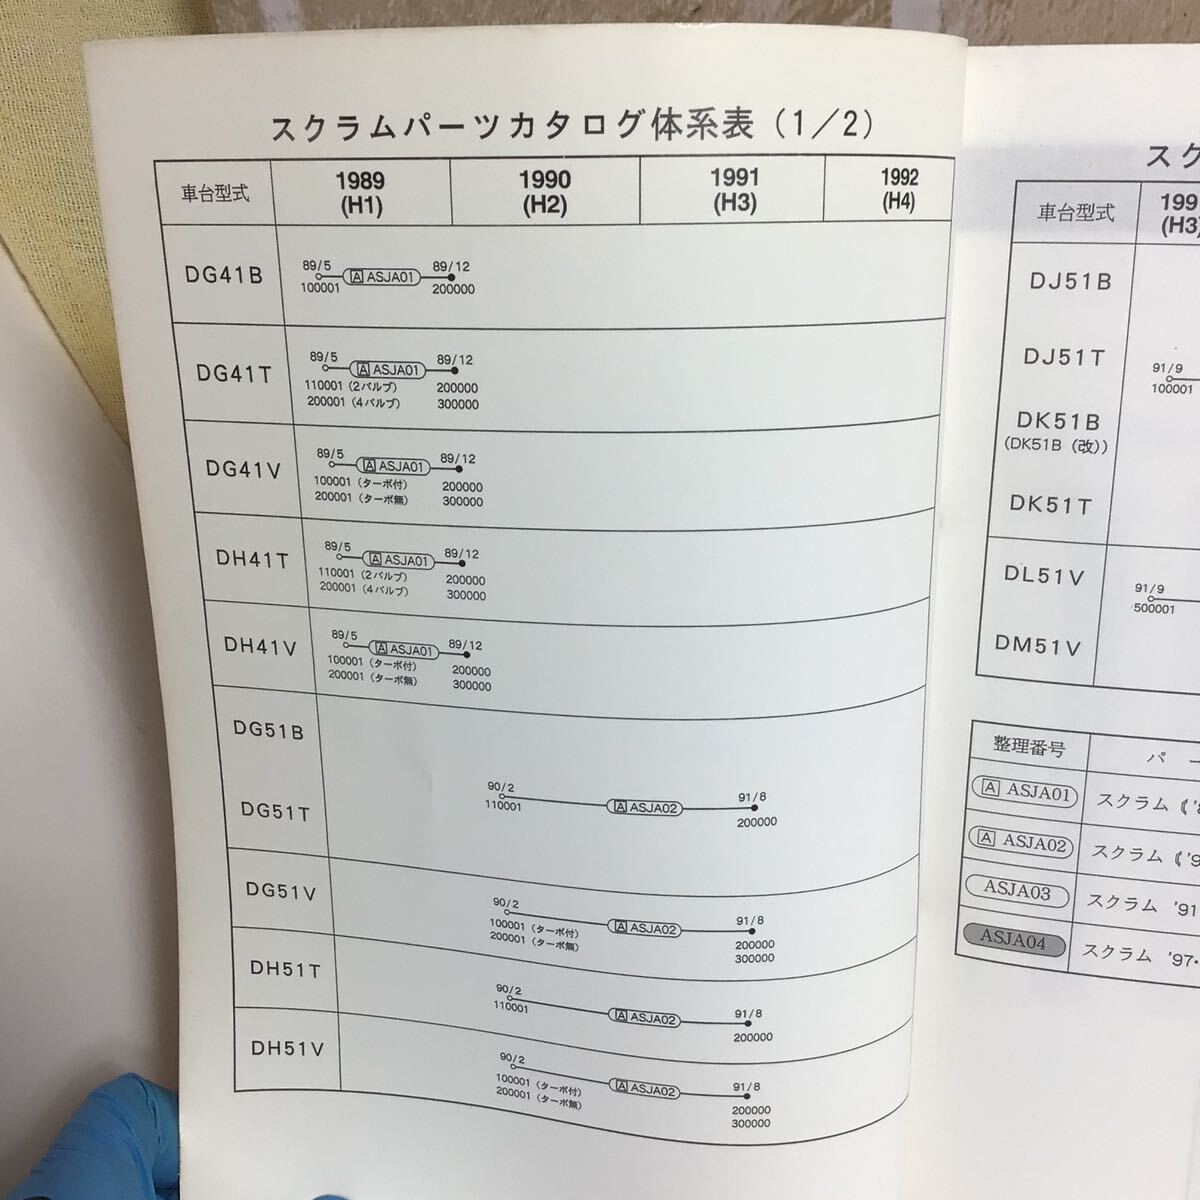 スクラムパーツカタログ体系表（1／2）
車台型式 1989 (H1) 1990 (H2) 1991 (H3) 1992 (H4)
DG41B
89/5 A ASJA01 89/12
100001 200000
DG41T
89/5 A ASJA01 89/12
110001（2バルブ） 200000
200001（4バルブ） 300000
DG41V
89/5 A ASJA01 89/12
100001（ターボ付） 200000
200001（ターボ無） 300000
DH41T
89/5 A ASJA01 89/12
110001（2バルブ） 200000
200001（4バルブ） 300000
DH41V
89/5 A ASJA01 89/12
100001（ターボ付） 200000
200001（ターボ無） 300000
DG51B
DG51T
90/2 A ASJA02 91/8
110001 200000
DG51V
90/2 A ASJA02 91/8
100001（ターボ付） 200000
200001（ターボ無） 300000
DH51T
90/2 A ASJA02 91/8
110001 200000
DH51V
90/2 A ASJA02 91/8
100001（ターボ付） 200000
200001（ターボ無） 300000
スク
車台型式 199 (H3)
DJ51B
DJ51T
91/9
100001
DK51B
(DK51B（改）)
DK51T
DL51V
91/9
500001
DM51V
整理番号 パー
A ASJA01 スクラム《'8
A ASJA02 スクラム《'9
ASJA03 スクラム '91
ASJA04 スクラム '97・